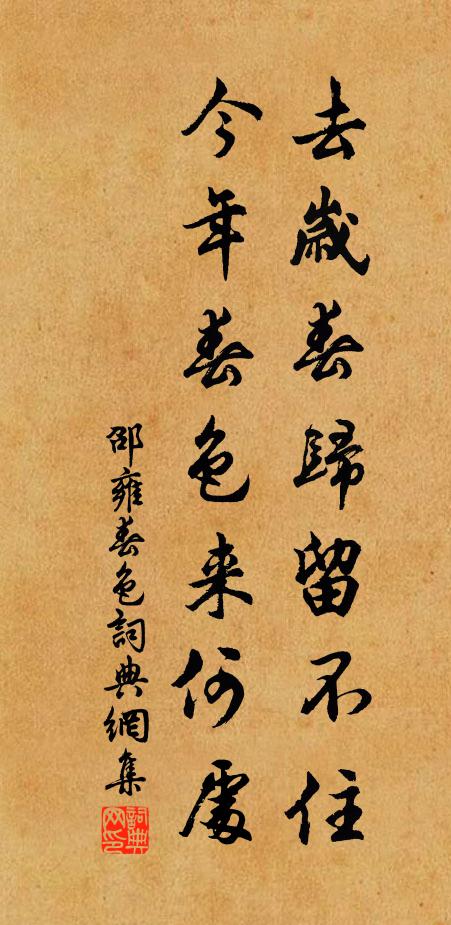 去歲春歸留不住
今年春色来何處
邵雍春色詞典網集
詞典
网印